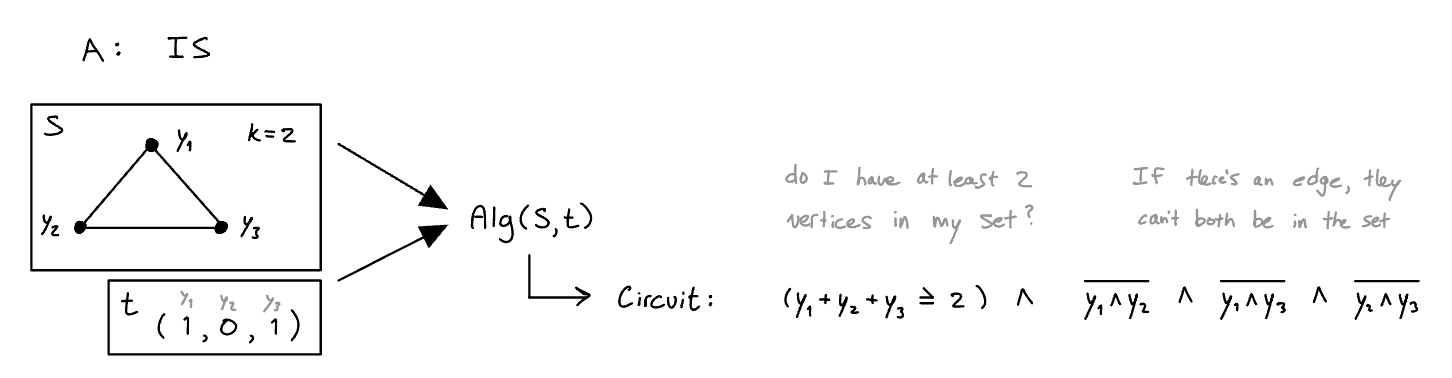 A: IS
S
k=2
y₁
y₂
y₃
t
y₁ y₂ y₃
(1,0,1)
Alg(S,t)
do I have at least 2
vertices in my set?
If there's an edge, they
can't both be in the set
Circuit: (y₁+y₂+y₃ ≥ 2) ∧ \overline{y₁∧y₂} ∧ \overline{y₁∧y₃} ∧ \overline{y₂∧y₃}